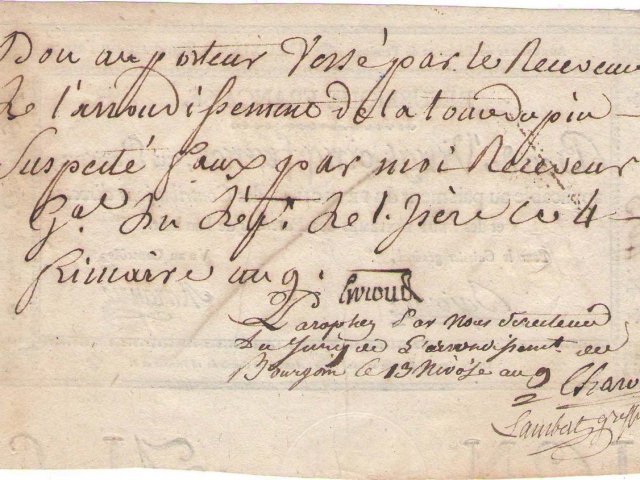 Bon au porteur versé par le Receveur
de l'arrondissement de la tour du pin
Suspecté faux par moi Receveur
Gal. du dépt. de l'isère ce 4
frimaire an 9.
Giroud
Paraphez par Nous directeur
du Jury de l'arrondissemt. de
Bourgoin le 13 Nivôse an 9
Lambert